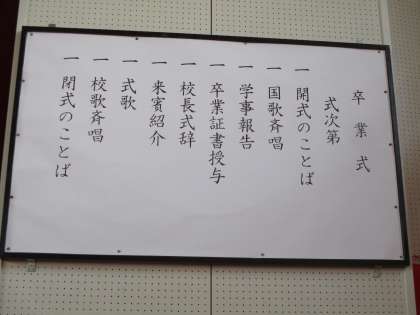 卒業式
式次第
一 開式のことば
一 国歌斉唱
一 学事報告
一 卒業証書授与
一 校長式辞
一 来賓紹介
一 式歌
一 校歌斉唱
一 閉式のことば